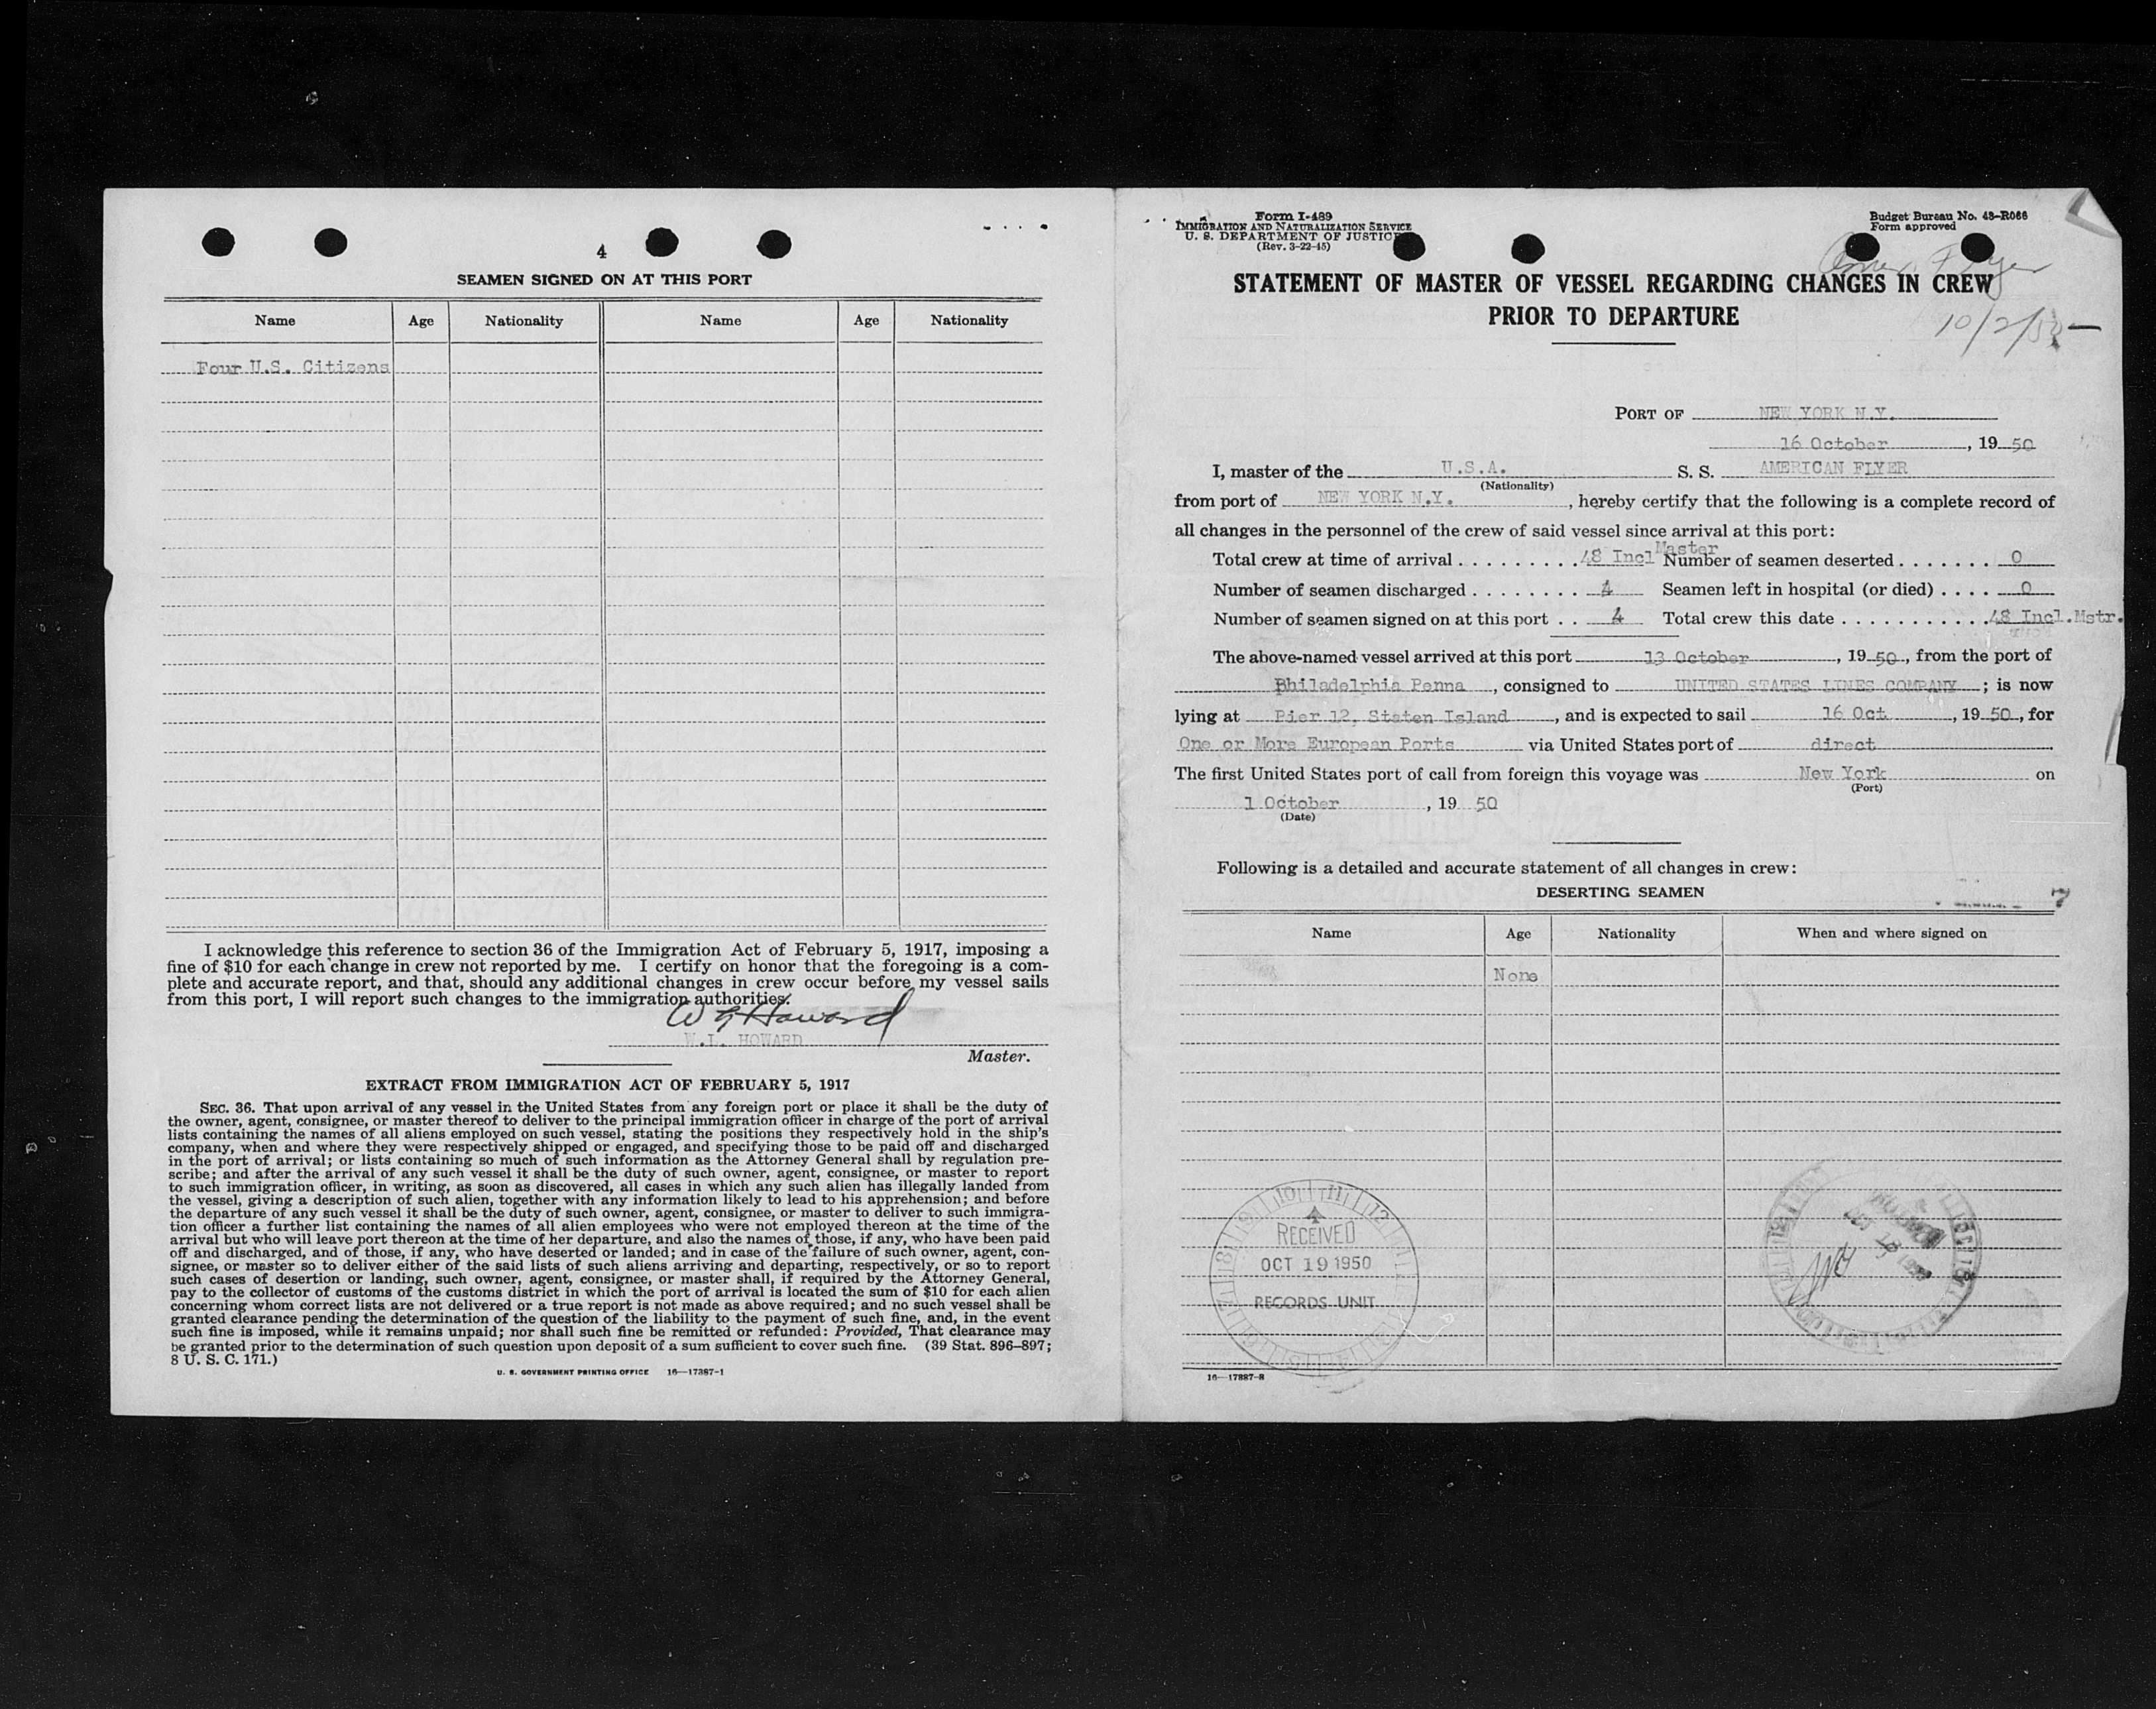 4
SEAMEN SIGNED ON AT THIS PORT
Name Age Nationality Name Age Nationality
Four U.S. Citizens
I acknowledge this reference to section 36 of the Immigration Act of February 5, 1917, imposing a
fine of $10 for each change in crew not reported by me. I certify on honor that the foregoing is a com-
plete and accurate report, and that, should any additional changes in crew occur before my vessel sails
from this port, I will report such changes to the immigration authorities.
W. I. HOWARD
Master.
EXTRACT FROM IMMIGRATION ACT OF FEBRUARY 5, 1917
SEC. 36. That upon arrival of any vessel in the United States from any foreign port or place it shall be the duty of
the owner, agent, consignee, or master thereof to deliver to the principal immigration officer in charge of the port of arrival
lists containing the names of all aliens employed on such vessel, stating the positions they respectively hold in the ship's
company, when and where they were respectively shipped or engaged, and specifying those to be paid off and discharged
in the port of arrival; or lists containing so much of such information as the Attorney General shall by regulation pre-
scribe; and after the arrival of any such vessel it shall be the duty of such owner, agent, consignee, or master to report
to such immigration officer, in writing, as soon as discovered, all cases in which any such alien has illegally landed from
the vessel, giving a description of such alien, together with any information likely to lead to his apprehension; and before
the departure of any such vessel it shall be the duty of such owner, agent, consignee, or master to deliver to such immigra-
tion officer a further list containing the names of all alien employees who were not employed thereon at the time of the
arrival but who will leave port thereon at the time of her departure, and also the names of those, if any, who have been paid
off and discharged, and of those, if any, who have deserted or landed; and in case of the failure of such owner, agent, con-
signee, or master so to deliver either of the said lists of such aliens arriving and departing, respectively, or so to report
such cases of desertion or landing, such owner, agent, consignee, or master shall, if required by the Attorney General,
pay to the collector of customs of the customs district in which the port of arrival is located the sum of $10 for each alien
concerning whom correct lists are not delivered or a true report is not made as above required; and no such vessel shall be
granted clearance pending the determination of the question of the liability to the payment of such fine, and, in the event
such fine is imposed, while it remains unpaid; nor shall such fine be remitted or refunded: Provided, That clearance may
be granted prior to the determination of such question upon deposit of a sum sufficient to cover such fine. (39 Stat. 896–897;
8 U. S. C. 171.)
U. S. GOVERNMENT PRINTING OFFICE 16—17887-1
Form I-489
IMMIGRATION AND NATURALIZATION SERVICE
U. S. DEPARTMENT OF JUSTICE
(Rev. 3-22-45)
Budget Bureau No. 43-R066
Form approved
Amer. Flyer
STATEMENT OF MASTER OF VESSEL REGARDING CHANGES IN CREW
PRIOR TO DEPARTURE
10/2/50
PORT OF NEW YORK N.Y.
16 October, 19 50
I, master of the U.S.A. S. S. AMERICAN FLYER
(Nationality)
from port of NEW YORK N.Y., hereby certify that the following is a complete record of
all changes in the personnel of the crew of said vessel since arrival at this port:
Total crew at time of arrival 48 Incl Master Number of seamen deserted 0
Number of seamen discharged 4 Seamen left in hospital (or died) 0
Number of seamen signed on at this port 4 Total crew this date 48 Incl.Mstr.
The above-named vessel arrived at this port 13 October, 19 50, from the port of
Philadelphia Penna, consigned to UNITED STATES LINES COMPANY; is now
lying at Pier 12, Staten Island, and is expected to sail 16 Oct, 19 50, for
One or More European Ports via United States port of direct
The first United States port of call from foreign this voyage was New York on
(Port)
1 October, 19 50
(Date)
Following is a detailed and accurate statement of all changes in crew:
DESERTING SEAMEN
7
Name Age Nationality When and where signed on
None
RECEIVED
OCT 19 1950
RECORDS UNIT
16—17887-3